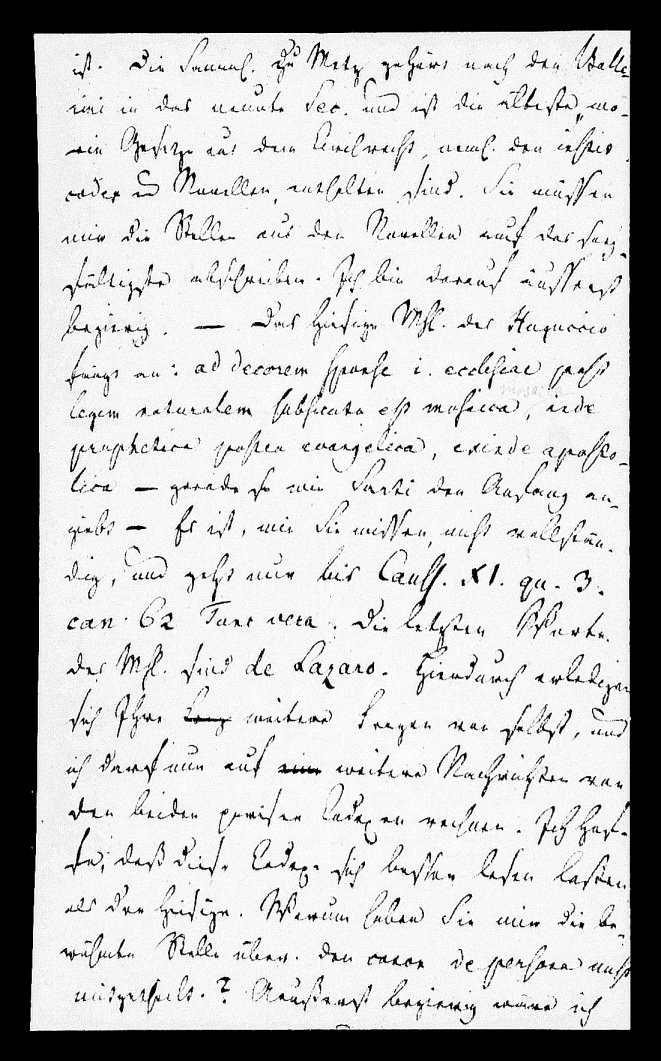 ist. Die Samml. zu Metz gehört nach den Balle-
rini in das neunte Sec. und ist die älteste, wo-
rin Gesetze aus dem Civilrecht, neml. den
codex u Novellen, enthalten sind. Sie müssen
mir die Stellen aus den Novellen auf das sorg-
fältigste abschreiben. Ich bin darauf äusserst
begierig. — Das hiesige Msc. des Huguccio
fängt an: ad decorem sponse i. ecclesiae post
legem naturalem subsicuta est mosaica, inde
prophetica postea evangelica, exinde aposto-
lica — gerade so wie Sarti den Anfang an-
giebt — Es ist, wie Sie wissen, nicht vollstän-
dig, und geht nur bis Causs. XI. qu. 3.
can. 62 Tunc vera. Die letzten Worte
des Msc. sind de Lazaro. Hierdurch erledigen
sich Ihre weitere Fragen von selbst, und
ich darf nun auf weitere Nachrichten von
den beiden pariser Codexen rechnen. Ich hof-
fe, daß diese Codex. sich besser lesen lassen
als der hiesige. Warum haben Sie mir die be-
rühmte Stelle über den de persona nicht
mitgetheilt.? Aeußerst begierig wäre ich